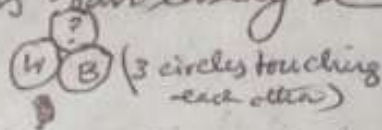 ?
W B (3 circles touching
each other)